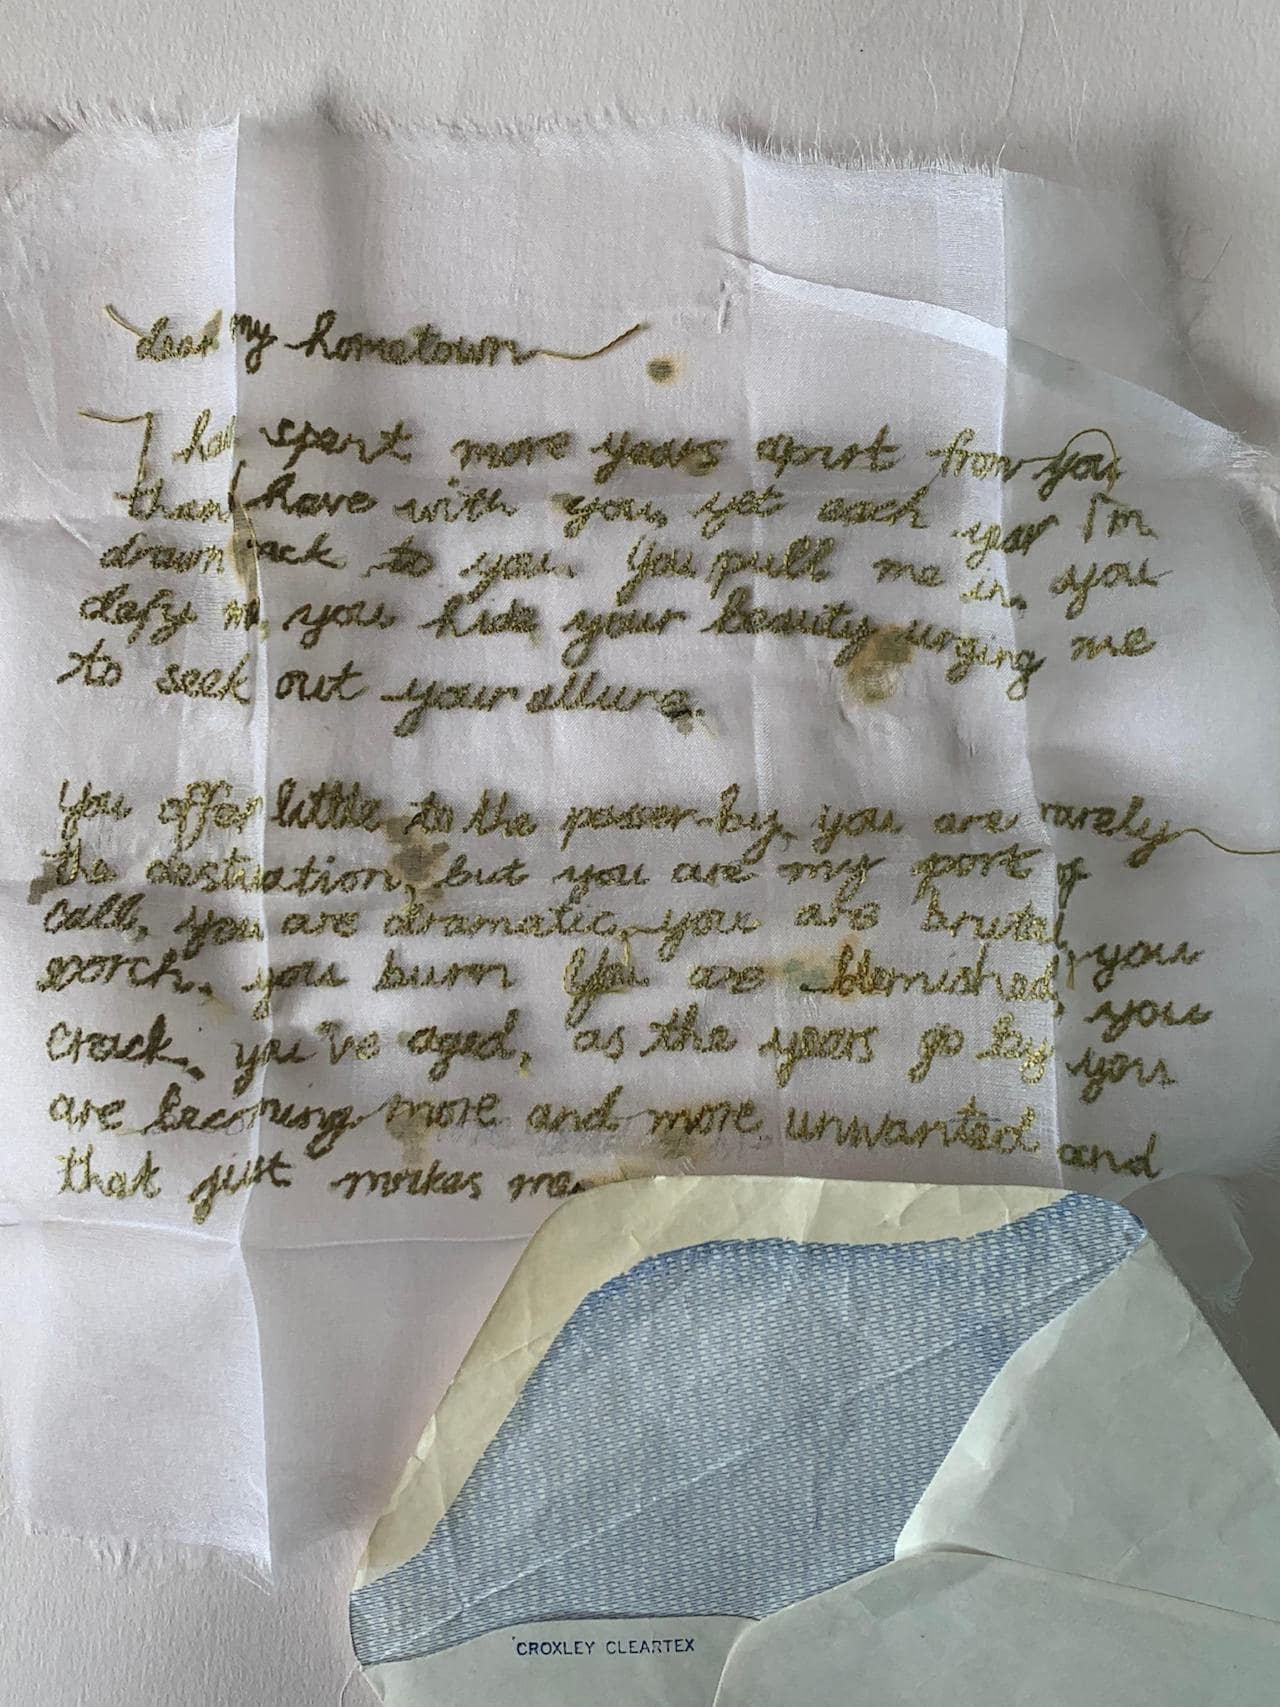 dear my hometown
I have spent more years apart from you
than I have with you, yet each year I'm
drawn back to you. You pull me in, you
defy me, you hide your beauty urging me
to seek out your allure.
You offer little to the passer-by, you are rarely
the destination, but you are my port of
call, you are dramatic, you are brutal, you
scorch, you burn. You are blemished, you
crack, you've aged, as the years go by you
are becoming more and more unwanted and
that just makes me
CROXLEY CLEARTEX